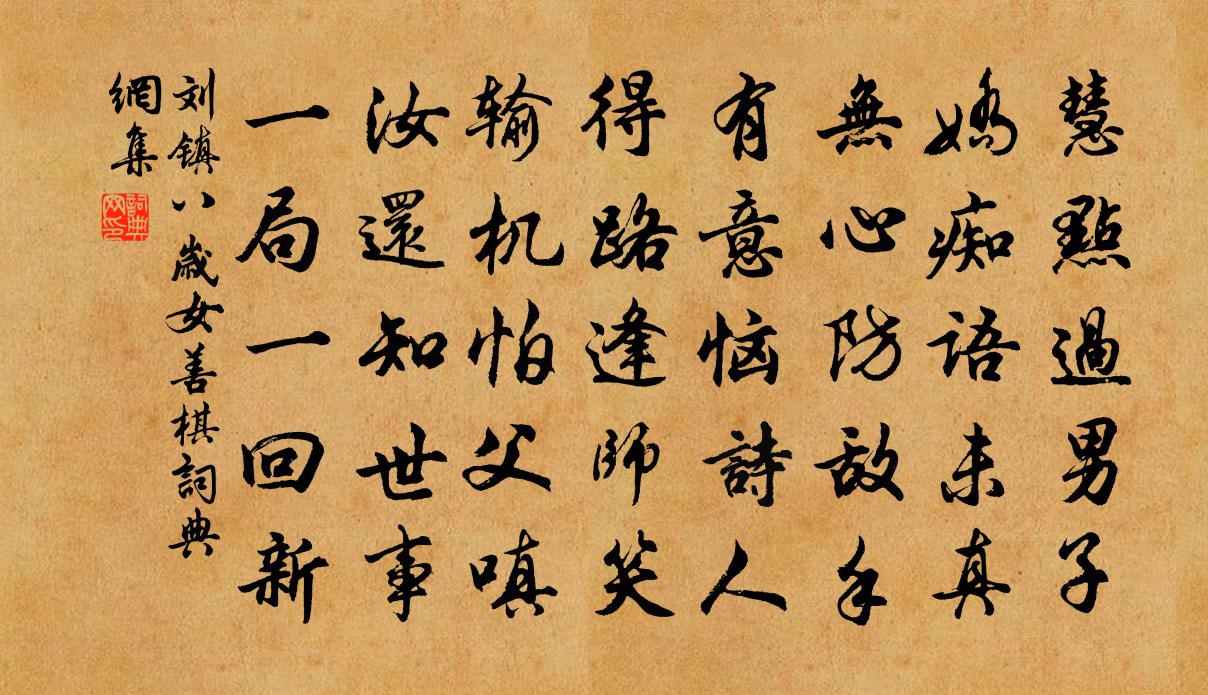 慧黠過男子
嬌痴語未真
無心防敌手
有意恼詩人
得路逢師笑
输机怕父嗔
汝還知世事
一局一回新
刘镇八歲女善棋詞典
網集
詞典網印